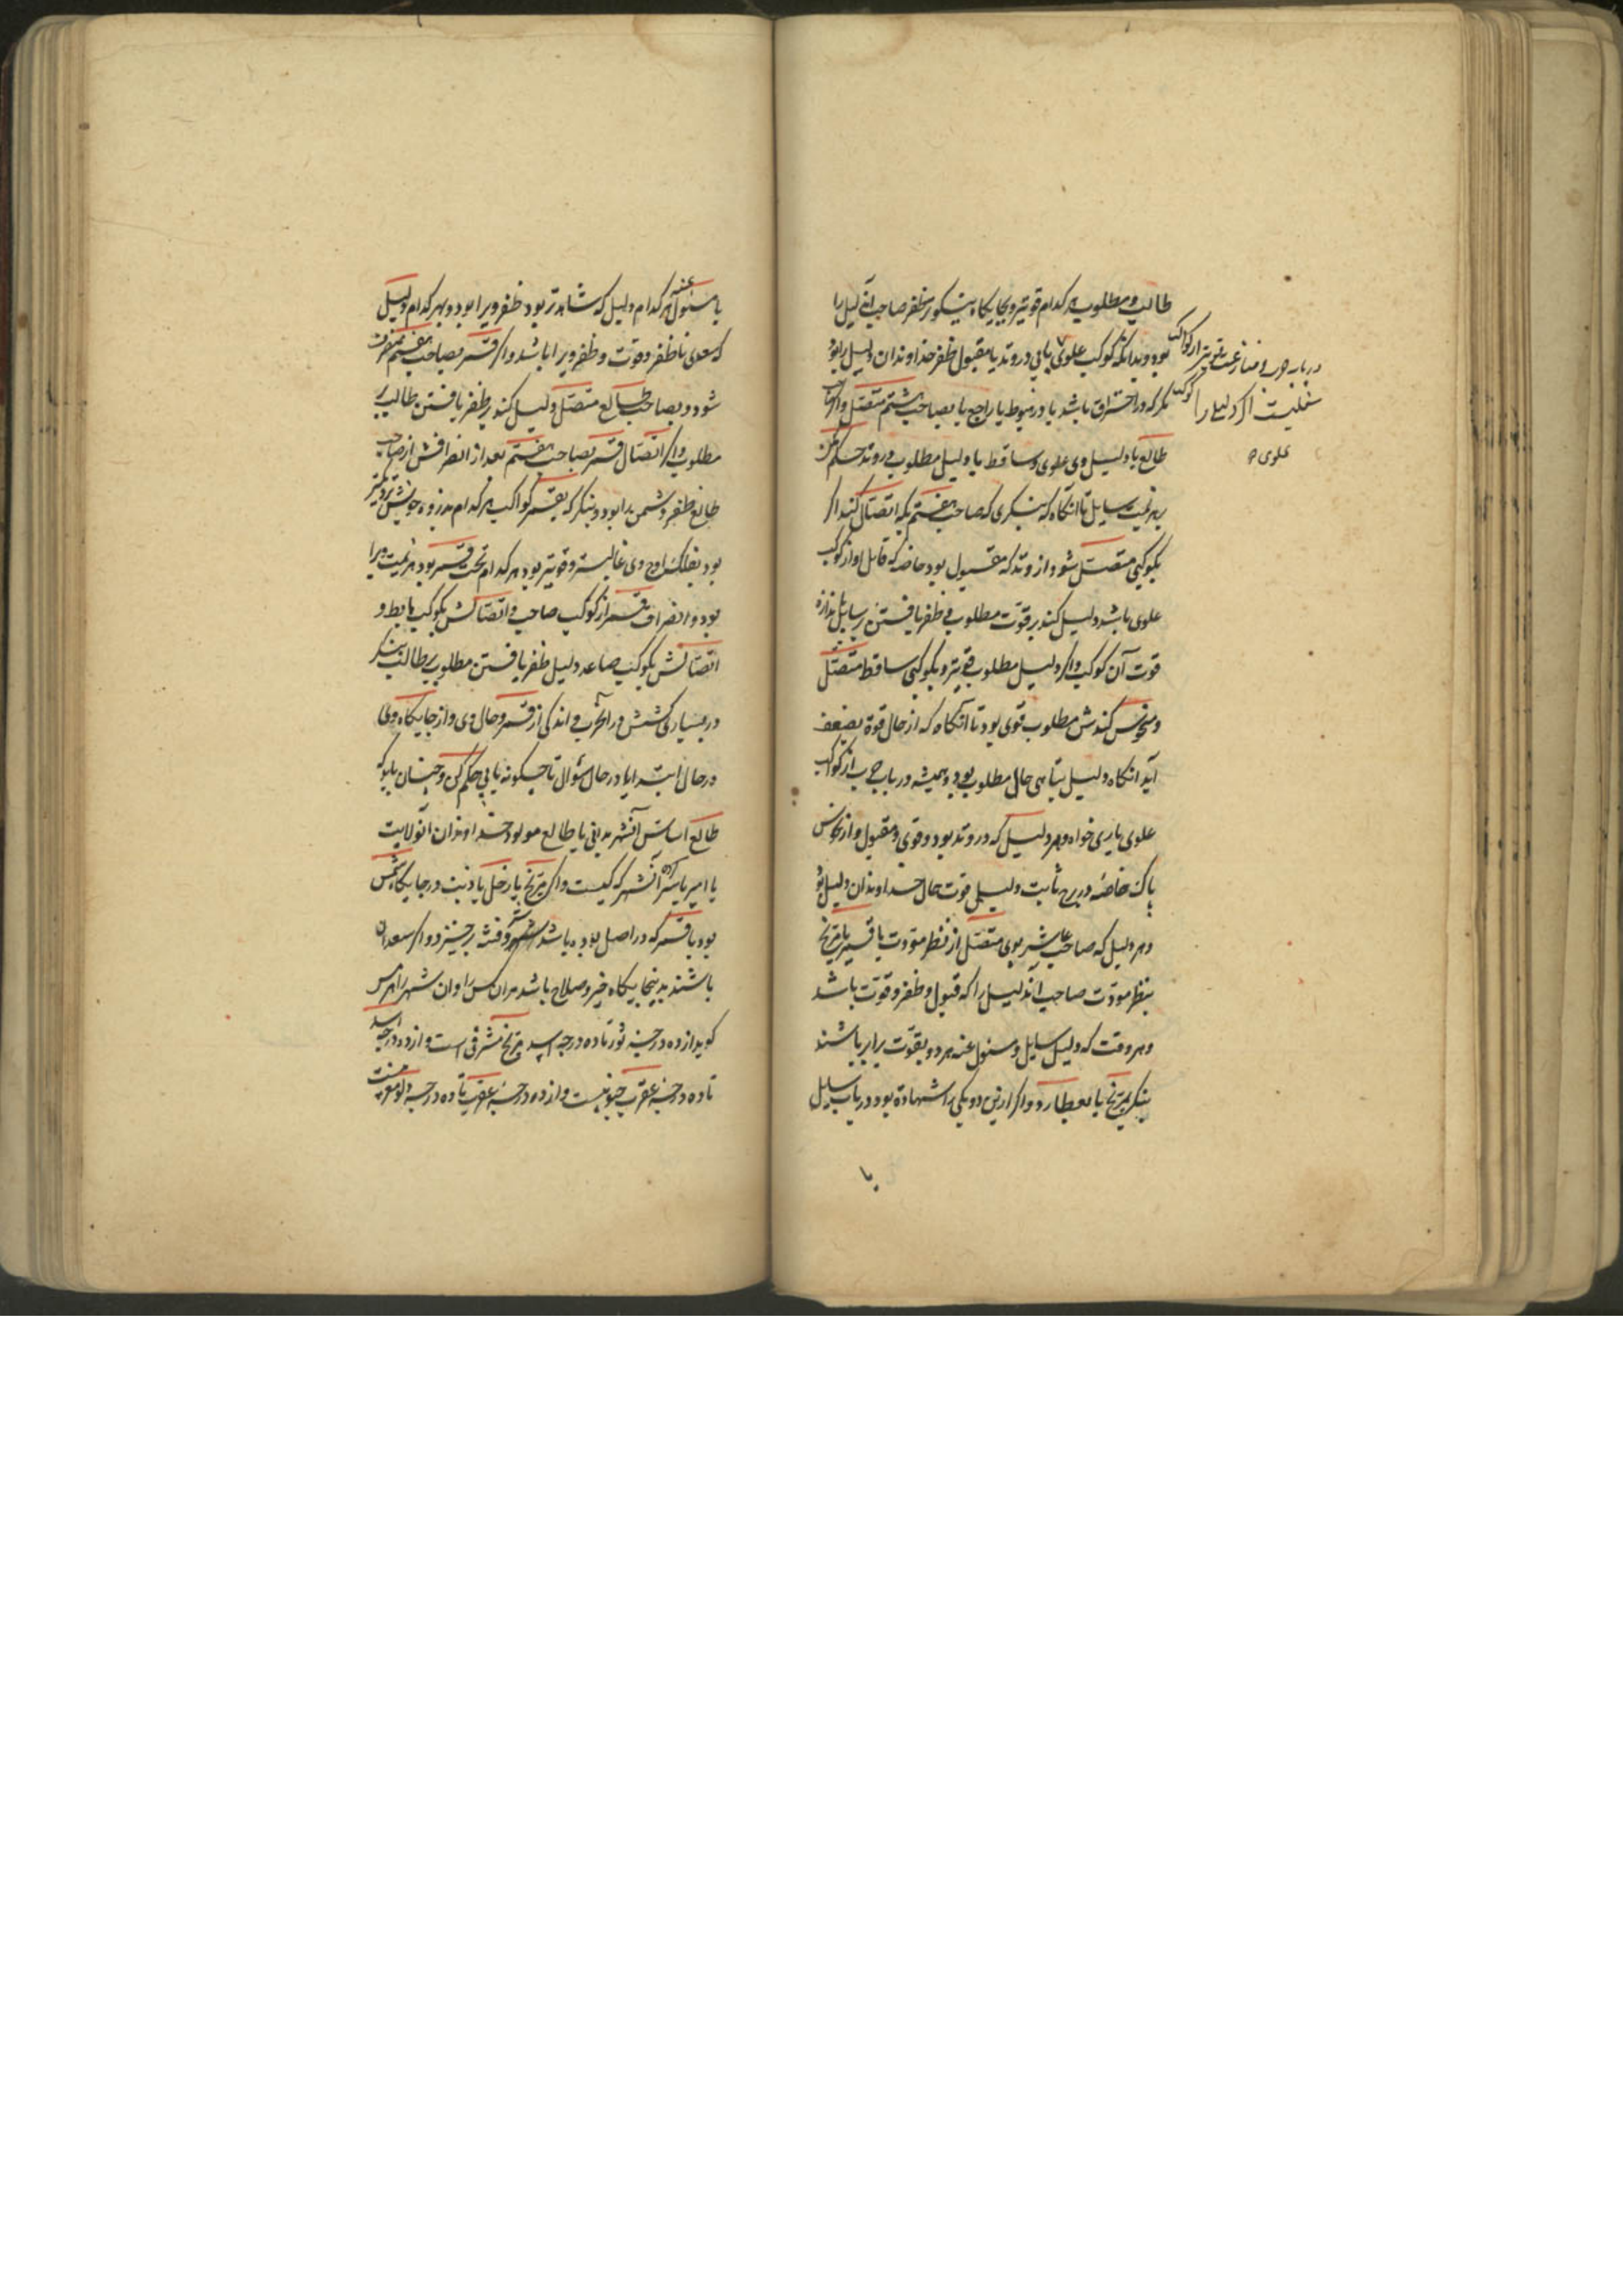 طالب و مطلوب هر کدام قویتر و بجایگاه نیکوتر ظفر صاحب آن دلیل را
بود و بدانکه کوکب علوی یابی در وتد یا مقبول ظفر خداوندان دلیل را بود
مگر که در احتراق باشد یا در هبوط یا راجع یا بصاحب هشتم متصل و اگر صاحب
طالع یا دلیل وی علوی و ساقط یا دلیل مطلوب در وتد حکم کن
بهزیمت سایل تا آنگاه که بنگری که صاحب هفتم بکه اتصال کند اگر
بکوکبی متصل شود از وتد که مقبول بود خاصه که قابل او از کواکب
علوی باشد دلیل کند بر قوت مطلوب و ظفر یافتن بر سایل باندازه
قوت آن کوکب و اگر دلیل مطلوب قویتر و بکوکبی ساقط متصل
و نحوس کندش مطلوب قوی بود تا آنگاه که از حال قوة بضعف
آید آنگاه دلیل تباهی حال مطلوب بود و همیشه در باب حرب از کواکب
علوی یاری خواه و هر دلیل که در وتد بود و قوی و مقبول و از نحاس
پاک خاصه در برج ثابت دلیل قوت حال خداوندان دلیل بود
و هر دلیل که صاحب عاشر بوی متصل از نظر مودت یا قمر یا مریخ
بنظر مودت صاحب آن دلیل را که قبول و ظفر و قوت باشد
و هر وقت که دلیل سایل و مسئول عنه هر دو بقوت برابر باشند
بنگر بمریخ یا بعطارد و اگر ازین دو یکی را شهادة بود در باب سایل
یا
در باب حرب و منازعت قویتر از کواکب
سفلیست اگر دلیل را کوکب
علوی
یا مسئول عنه هر کدام دلیل که شاهدتر بود ظفر ویرا بود و بهر کدام دلیل
که سعدی ناظر و قوت و ظفر ویرا باشد و اگر قمر بصاحب هفتم منصرف
شود و بصاحب طالع متصل دلیل کند بر ظفر یافتن طالب بر
مطلوب و اگر اتصال قمر بصاحب هفتم بعد از انصرافش از صاحب
طالع ظفر دشمن را بود و بنگر که بقمر کواکب هر کدام بذروه خویش نزدیکتر
بود بفلک اوج وی غالبتر و قویتر بود هر کدام تحت قمر بود هزیمت ویرا
بود و انصراف قمر از کوکب صاعد و اتصالش بکوکب هابط و
اتصالش بکوکب صاعد دلیل ظفر یافتن مطلوب بر طالب بنگر
در بسیاری کشش در آن حرب و اندکی از قمر و حال وی و از جایگاه وی
در حال ابتدا یا در حال سؤال تا چگونه یابی حکم کن و چنان باید که
طالع اساس آن شهر بدانی یا طالع مولود خداوندان آن ولایت
یا امیر یا سر آن شهر که کیست و اگر مریخ یا زحل یا ذنب در جایگاه شمس
بود یا قمر که در اصل بوده باشد شر و فتنه برخیزد و اگر سعدان
باشند بدینجایگاه خیر و صلاح باشد مر آن کس را و آن شهر را هرمس
گوید از ده درجه ثور تا ده درجه اسد مریخ مشرقی است و از ده درجه اسد
تا ده درجه عقرب جنوبیست و از ده درجه عقرب تا ده درجه دلو مغربیست